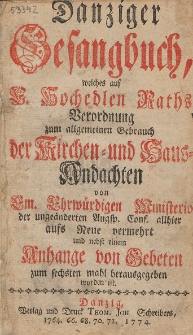 53342
Danziger
Gesangbuch,
welches auf
E. Hochedlen Raths
Verordnung
zum allgemeinen Gebrauch
der Kirchen-und Haus-
Andachten
von
Em. Ehrwürdigen Ministerio
der ungeänderten Augsp. Conf. allhier
aufs Neue vermehrt
und nebst einem
Anhange von Gebeten
zum sechsten mahl herausgegeben
worden ist.
Danzig,
Verlag und Druck Thom. Joh. Schreibers,
1764. 66. 68. 70. 72. 1774.